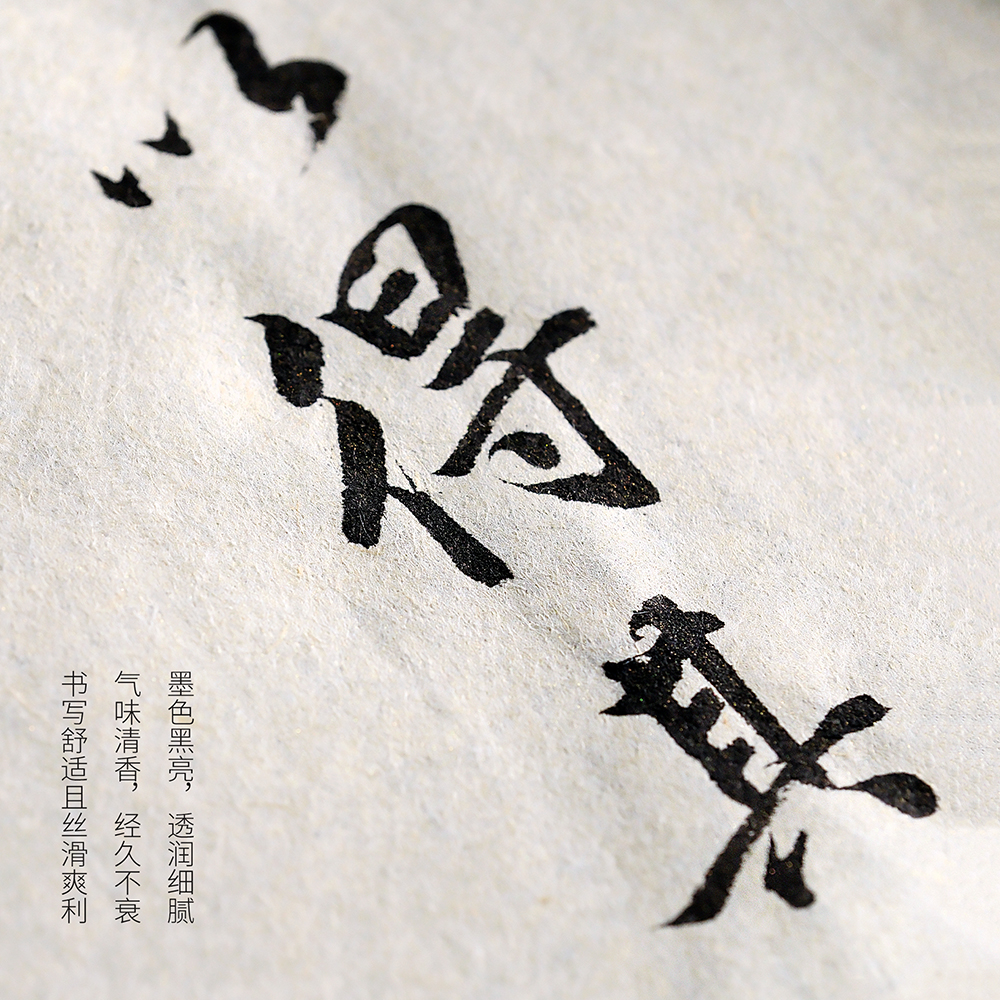 得其
墨色黑亮，透润细腻
气味清香，经久不衰
书写舒适且丝滑爽利